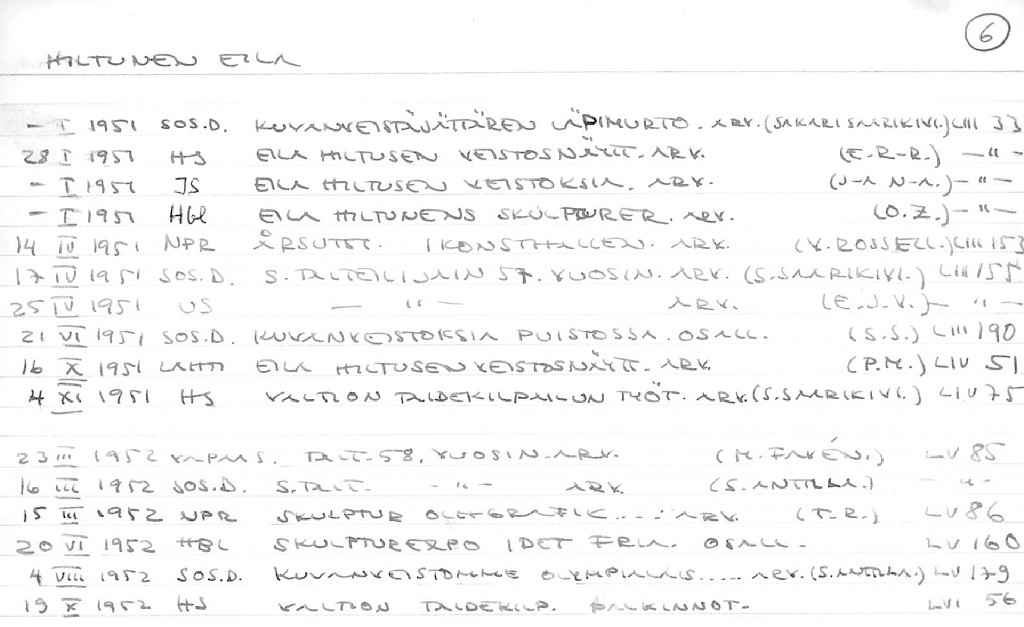 6
HILTUNEN EILA
- I 1951 SOS.D. KUVANVEISTÄJÄTTÄREN LÄPIMURTO. ARV. (SAKARI SAARIKIVI.) LIII 33
28 I 1951 HS EILA HILTUSEN VEISTOSNÄYTT. ARV. (E.R-R.) -"-
- I 1951 IS EILA HILTUSEN VEISTOKSIA. ARV. (J-A N-A.) -"-
- I 1951 Hbl EILA HILTUNENS SKULPTURER. ARV. (O.Z.) -"-
14 IV 1951 NPR ÅRSUTST. I KONSTHALLEN. ARV. (V. ROSSELL.) LIII 153
17 IV 1951 SOS.D. S. TAITEILIJAIN 57. VUOSIN. ARV. (S. SAARIKIVI.) LIII 155
25 IV 1951 US -"- ARV. (E.J.V.) -"-
21 VI 1951 SOS.D. KUVANVEISTOKSIA PUISTOSSA. OSALL. (S.S.) LIII 190
16 X 1951 LAHTI EILA HILTUSEN VEISTOSNÄYTT. ARV. (P.M.) LIV 51
4 XI 1951 HS VALTION TAIDEKILPAILUN TYÖT. ARV. (S. SAARIKIVI.) LIV 75
23 III 1952 VAPAA S. TAIT-58. VUOSIN. ARV. (H. FAVÉN.) LV 85
16 III 1952 SOS.D. S. TAIT. -"- ARV. (S. ANTTILA.) -"-
15 III 1952 NPR SKULPTUR OCH GRAFIK.... ARV. (T.R.) LV 86
20 VI 1952 HBL SKULPTUREXPO I DET FRIA. OSALL. LV 160
4 VIII 1952 SOS.D. KUVANVEISTOMME OLYMPIALAIS..... ARV. (S. ANTTILA.) LV 179
19 X 1952 HS VALTION TAIDEKILP. PALKINNOT. LVI 56